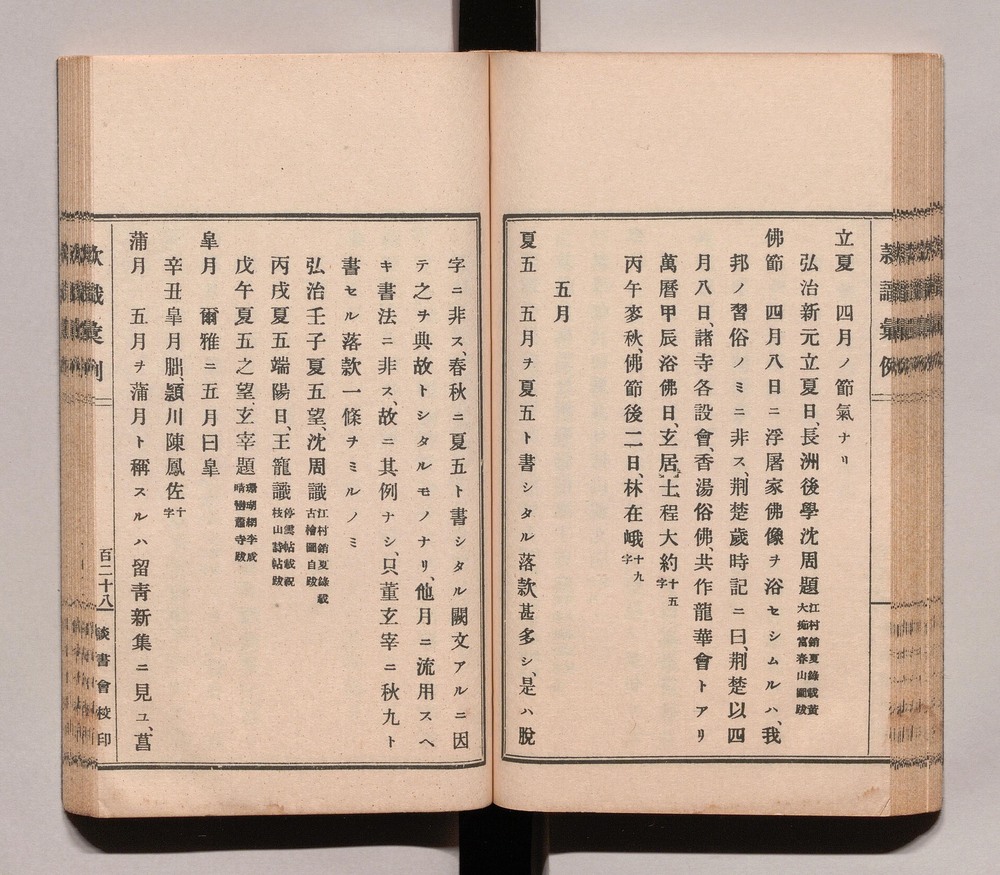 立夏　四月ノ節氣ナリ
弘治新元立夏日、長洲後學沈周題 江村銷夏錄載黃大痴富春山圖跋
佛節　四月八日ニ浮屠家佛像ヲ浴セシムルハ、我
邦ノ習俗ノミニ非ス、荆楚歲時記ニ曰、荆楚以四
月八日、諸寺各設會、香湯俗佛、共作龍華會トアリ
萬曆甲辰浴佛日、玄居士程大約 十五字
丙午麥秋、佛節後二日、林在峨 十九字
五月
夏五　五月ヲ夏五ト書シタル落款甚多シ、是ハ脫
字ニ非ス、春秋ニ夏五ト書シタル闕文アルニ因
テ之ヲ典故トシタルモノナリ、他月ニ流用スヘ
キ書法ニ非ス、故ニ其例ナシ、只董玄宰ニ秋九ト
書セル落款一條ヲミルノミ
弘治壬子夏五望、沈周識 江村銷夏錄載古檜圖自跋
丙戌夏五端陽日、王寵識 停雲帖載祝枝山詩帖跋
戊午夏五之望、玄宰題 珊瑚網李成晴巒蕭寺跋
皐月　爾雅ニ五月曰皐
辛丑皐月朏、潁川陳鳳佐 十字
蒲月　五月ヲ蒲月ト稱スルハ留靑新集ニ見ユ、菖
款識彙例
百二十八
談書會校印